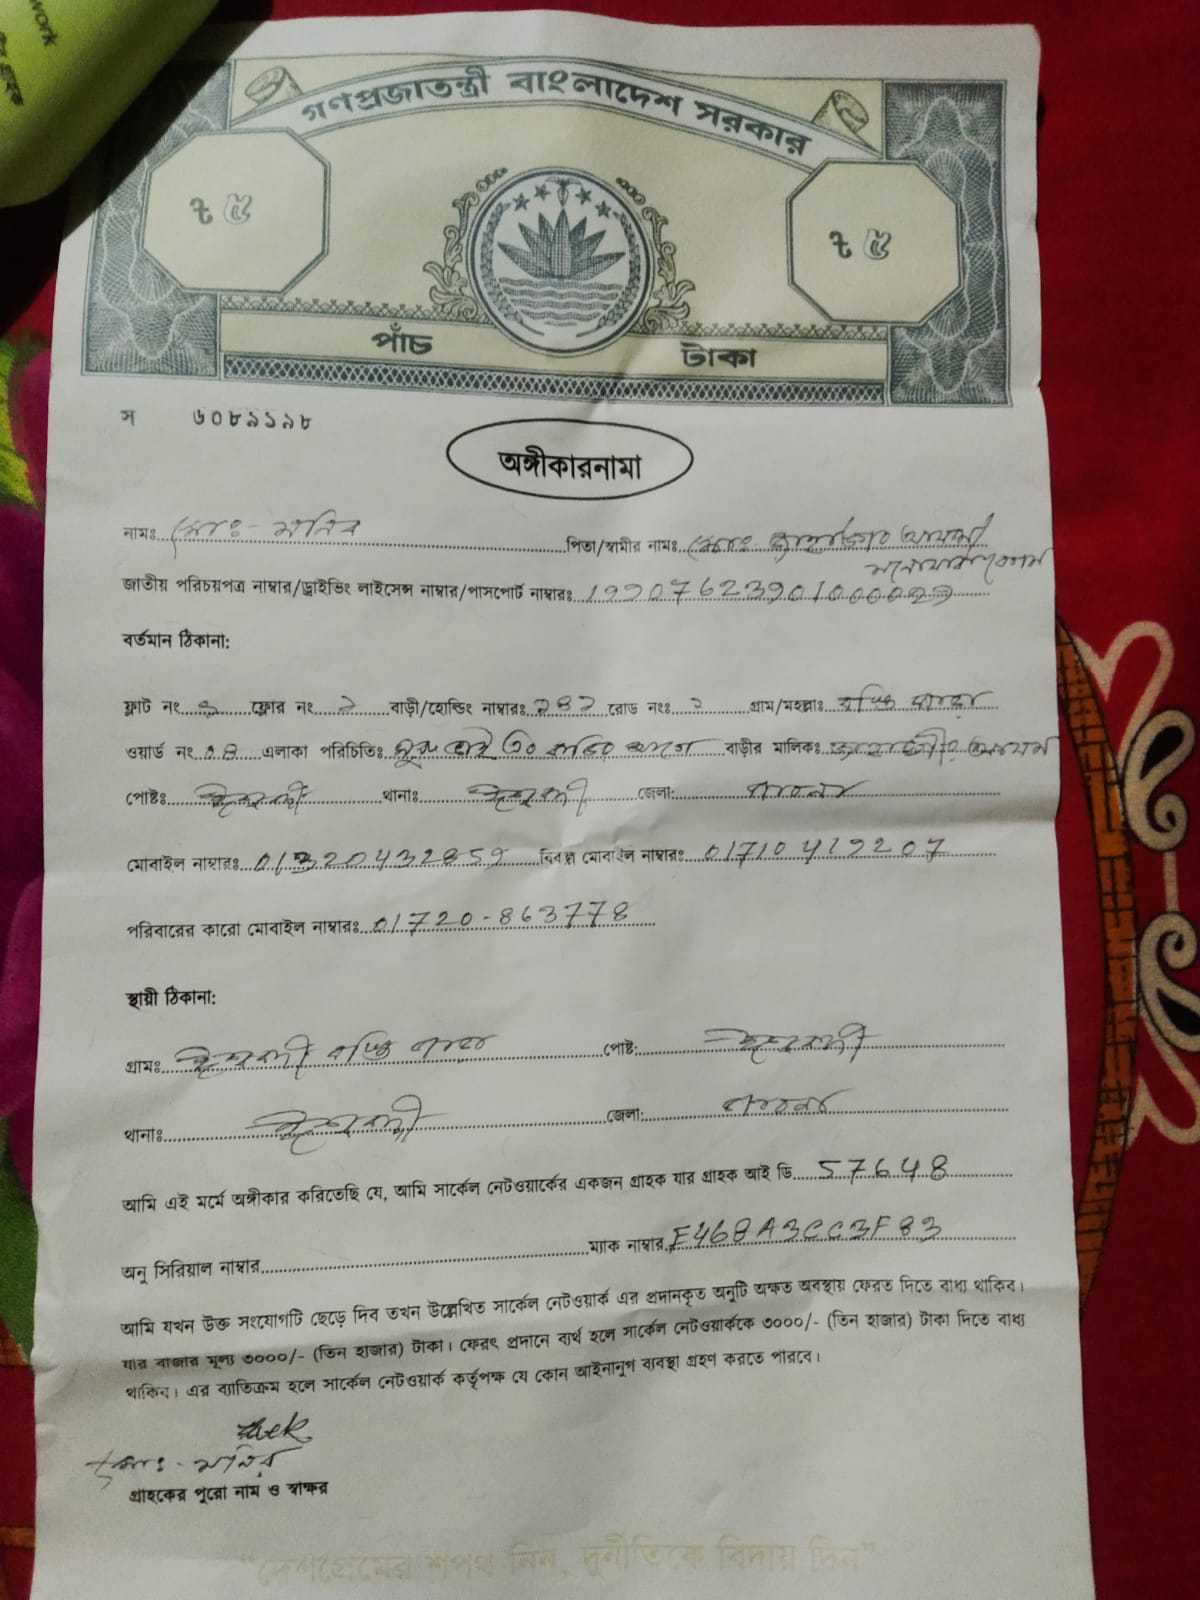 work
গণপ্রজাতন্ত্রী বাংলাদেশ সরকার
৳ ৫ ৳ ৫
পাঁচ টাকা
স ৬০৮৯১৯৮
অঙ্গীকারনামা
নামঃ মোঃ- মনির পিতা/স্বামীর নামঃ মোঃ- জাহাঙ্গীর আলম
মনোয়ারা বেগম
জাতীয় পরিচয়পত্র নাম্বার/ড্রাইভিং লাইসেন্স নাম্বার/পাসপোর্ট নাম্বারঃ 19907623901000029
বর্তমান ঠিকানা:
ফ্লাট নং ফ্লোর নং ২ বাড়ী/হোল্ডিং নাম্বারঃ ২৪২ রোড নংঃ ২ গ্রাম/মহল্লাঃ বস্তি পাড়া
ওয়ার্ড নং 08 এলাকা পরিচিতিঃ বাড়ির মালিকঃ জাহাঙ্গীর আলম
পোষ্টঃ ঈশ্বরদী থানাঃ ঈশ্বরদী জেলা: পাবনা
মোবাইল নাম্বারঃ বিকল্প মোবাইল নাম্বারঃ 01710419207
পরিবারের কারো মোবাইল নাম্বারঃ 01720-863778
স্থায়ী ঠিকানা:
গ্রামঃ ঈশ্বরদী বস্তি পাড়া পোষ্ট: ঈশ্বরদী
থানাঃ ঈশ্বরদী জেলা: পাবনা
আমি এই মর্মে অঙ্গীকার করিতেছি যে, আমি সার্কেল নেটওয়ার্কের একজন গ্রাহক যার গ্রাহক আই ডি 57648
অনু সিরিয়াল নাম্বার ম্যাক নাম্বার E468A3CC3F83
আমি যখন উক্ত সংযোগটি ছেড়ে দিব তখন উল্লেখিত সার্কেল নেটওয়ার্ক এর প্রদানকৃত অনুটি অক্ষত অবস্থায় ফেরত দিতে বাধ্য থাকিব।
যার বাজার মূল্য ৩০০০/- (তিন হাজার) টাকা। ফেরৎ প্রদানে ব্যর্থ হলে সার্কেল নেটওয়ার্ককে ৩০০০/- (তিন হাজার) টাকা দিতে বাধ্য
থাকিব। এর ব্যাতিক্রম হলে সার্কেল নেটওয়ার্ক কর্তৃপক্ষ যে কোন আইনানুগ ব্যবস্থা গ্রহণ করতে পারবে।
মোঃ- মনির
গ্রাহকের পুরো নাম ও স্বাক্ষর
“দেশপ্রেমের শপথ নিন, দুর্নীতিকে বিদায় দিন”